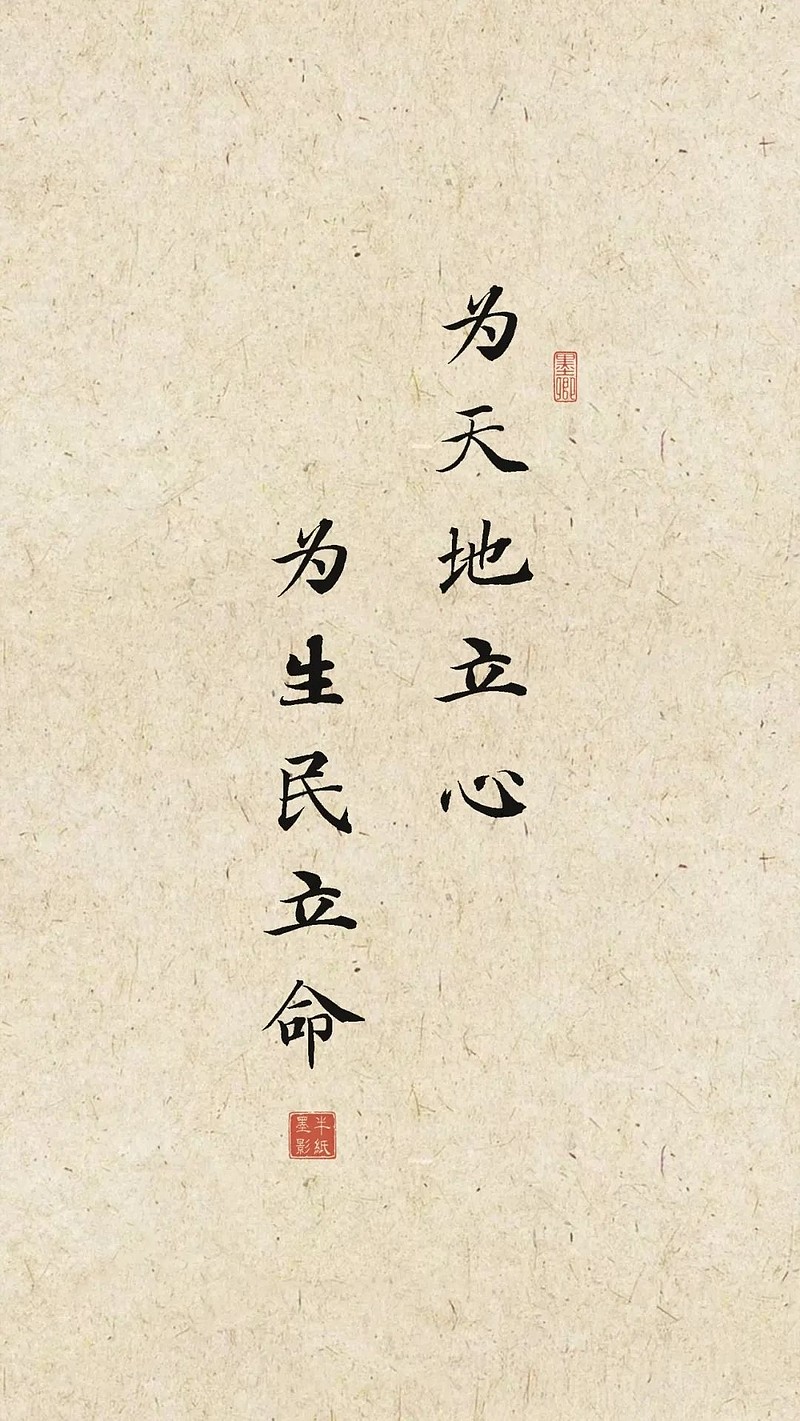 为天地立心
墨卿
为生民立命
半紙墨影